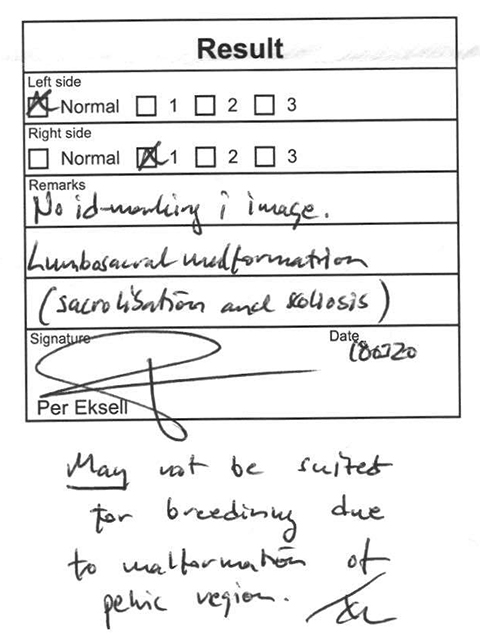 Result
Left side
Normal 1 2 3
Right side
Normal 1 2 3
Remarks
No id-marking i image.
Lumbosacral malformation
(sacrolisation and scoliosis)
Signature Date
Per Eksell
May not be suited
for breedining due
to malformation of
pelvic region.